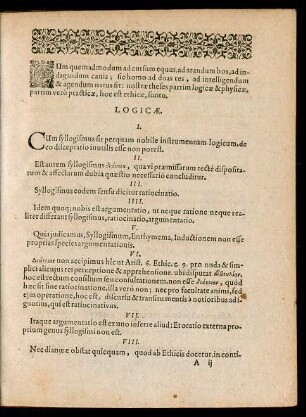 Um quemadmodum ad cursum equus, ad arandum bos, ad in-
dagandum canis; sic homo ad duas res, ad intelligendum
& agendum natus sit: nostræ theses partim logicæ & physicæ,
partim verò practicæ, hoc est ethicæ, sunto.
LOGICÆ.
I.
CUm syllogismus sit perquam nobile instrumentum logicum, de
eo disceptatio inutilis esse non potest.
II.
Est autem syllogismus διάνοια, qua vi præmissarum rectè dispositar-
um & affectarum dubia quæstio necessariò concluditur.
III.
Syllogismus eodem sensu dicitur ratiocinatio.
IIII.
Idem quoq; nobis est argumentatio, ut neque ratione neque rea-
liter differant syllogismus, ratiocinatio, argumentatio.
V.
Quia judicamus, Syllogismum, Enthymema, Inductionem non esse
proprias species argumentationis.
VI.
διάνοιαν non accipimus hîc ut Arist. 6. Ethic. c. 9. pro nuda & sim-
plici alicujus rei perceptione & apprehensione: ubi disputat
hoc est rectum consilium seu consultationem, non esse διάνοιαν, quòd
hæc sit sine ratiocinatione, illa vero non; nec pro facultate animæ, sed
ejus operatione, hoc est, discursu & transitu mentis à notioribus ad i-
gnotius, qui est ratiocinativus.
VII.
Itaque argumentatio est ex uno inferre aliud: Et oratio externa pro-
prium genus syllogismi non est.
VIII.
Nec dianœæ obstat quicquam, quod ab Ethicis docetur, in conti-
A ij